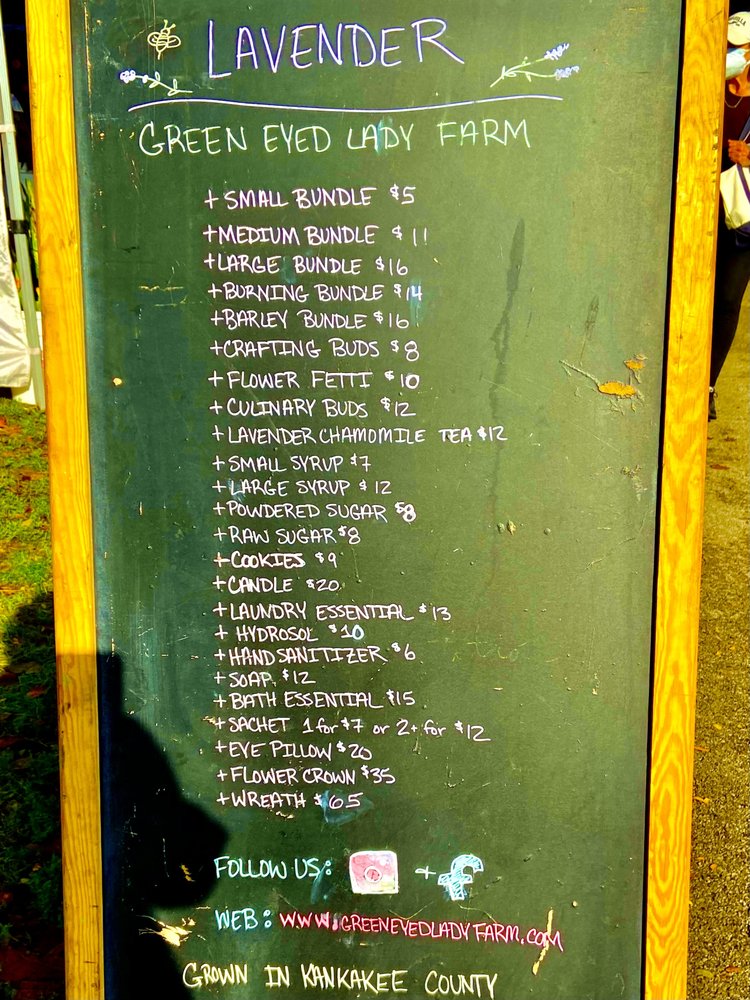 LAVENDER
GREEN EYED LADY FARM
+ SMALL BUNDLE $5
+ MEDIUM BUNDLE $11
+ LARGE BUNDLE $16
+ BURNING BUNDLE $14
+ BARLEY BUNDLE $16
+ CRAFTING BUDS $8
+ FLOWER FETTI $10
+ CULINARY BUDS $12
+ LAVENDER CHAMOMILE TEA $12
+ SMALL SYRUP $7
+ LARGE SYRUP $12
+ POWDERED SUGAR $8
+ RAW SUGAR $8
+ COOKIES $9
+ CANDLE $20
+ LAUNDRY ESSENTIAL $13
+ HYDROSOL $10
+ HAND SANITIZER $6
+ SOAP $12
+ BATH ESSENTIAL $15
+ SACHET 1 for $7 or 2+ for $12
+ EYE PILLOW $20
+ FLOWER CROWN $35
+ WREATH $65
FOLLOW US: + f
WEB: WWW.GREENEYEDLADYFARM.COM
GROWN IN KANKAKEE COUNTY